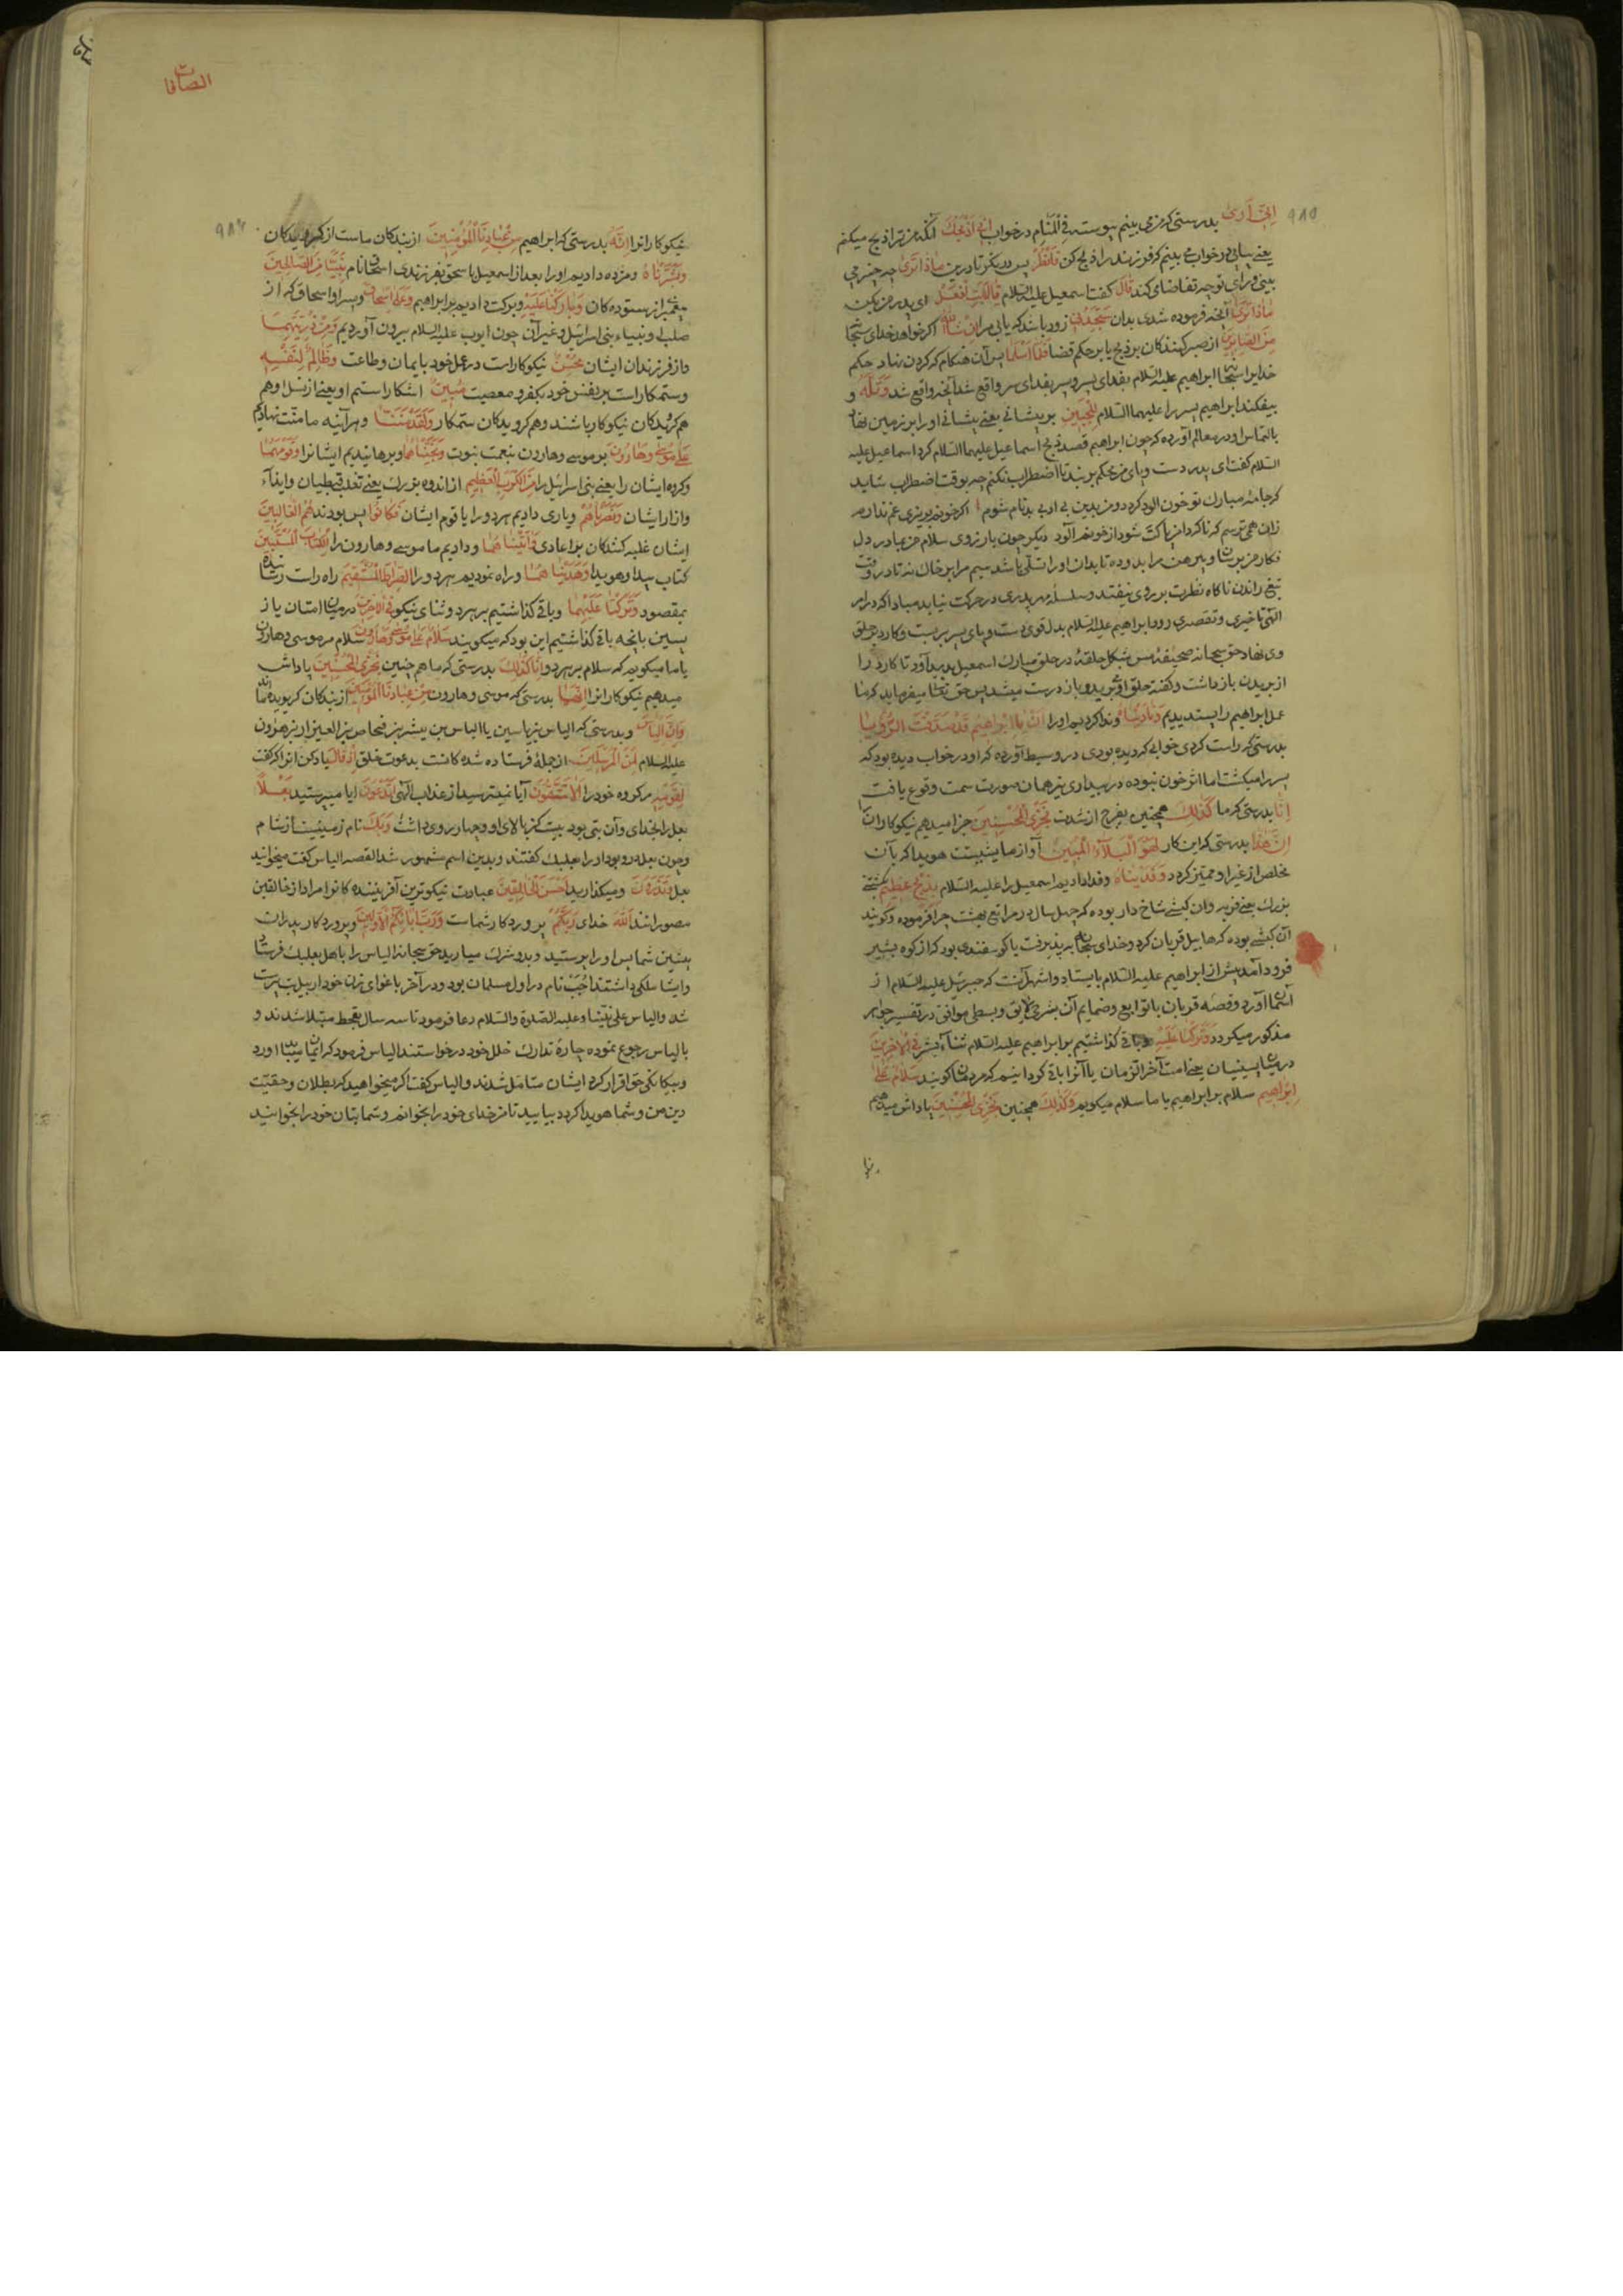 ۹۸۵
اِنّی اَری بدرستی که من می بینم پیوسته فِی الْمَنامِ در خواب اَنّی اَذْبَحُكَ آنکه من ترا ذبح میکنم
یعنی پیاپی در خواب می بینم که فرزند را ذبح کن فَانْظُرْ پس در نگر تا درین ماذا تَری چه چیز می
بینی و رای تو چه تقاضا می کند قالَ گفت اسمعیل علیه السلام یا اَبَتِ افْعَلْ ای پدر من بکن
ما تُؤْمَرُ آنچه فرموده شدی بدان سَتَجِدُنی زود باشد که یابی مرا اِنْ شاءَ اللّهُ اگر خواهد خدای
مِنَ الصّابِرینَ از صبر کنندگان بر ذبح یا بر حکم قضا فَلَمّا اَسْلَما پس آن هنگام که گردن نهاد حکم
خدایرا ابراهیم علیه السلام بفدای پسر و پسر بفدای سر واقع شد آنچه واقع شد وَتَلَّهُ و
بیفکند ابراهیم پسر را علیهما السلام لِلْجَبینِ بر پیشانی یعنی پیشانی او را بر زمین نهاد
بالتماس او در معالم آورده که چون ابراهیم قصد ذبح اسماعیل علیهما السلام کرد اسماعیل علیه
السلام گفت ای پدر دست و پای من محکم بربند تا اضطراب نکنم چه بوقت اضطراب شاید
که جامهٔ مبارك تو خون آلود گردد و من بدین بی ادبی بدنام شوم اگر خونم بریزی غم ندارم
زان همی ترسم که ناگه دامن پاکت شود از خونم آلود دیگر چون باز روی سلام من بمادر دل
فکار من برسان و پیرهن مرا بدو ده تا بدان او را تسلی باشد سیم مرا بر خاك نه تا در وقت
تیغ راندن ناگاه نظرت بر روی نیفتد و سلسلهٔ مهر پدری در حرکت نیاید مبادا که در امر
الهی تأخیری و تقصیری رود ابراهیم علیه السلام بدل قوی دست و پای پسر ببست و کارد بر حلق
وی نهاد حق سبحانه صحیفهٔ مس بشکل حلقه در حلق مبارك اسمعیل پدید آورد تا کارد را
از بریدن باز داشت و گفته حلق او می برید و باز درست میشد پس حق تعالی میفرماید که ما
عمل ابراهیم را پسندیدیم وَنادَیْناهُ و ندا کردیم او را اَنْ یا اِبْراهیمُ قَدْ صَدَّقْتَ الرُّؤْیا
بدرستی که راست کردی خوابی که دیده بودی در وسیط آورده که او در خواب دیده بود که
پسر را میکشت اما اثر خون نبوده در بیداری نیز همان صورت سمت وقوع یافت
اِنّا بدرستی که ما کَذلِكَ همچنین بفرج از شدت نَجْزِی الْمُحْسِنینَ جزا میدهیم نیکوکارانرا
اِنَّ هذا بدرستی که این کار لَهُوَ الْبَلاءُ الْمُبینُ آن آزمایشیست هویدا که بآن
مخلص از غیر او ممیز گردد وَفَدَیْناهُ و فدا دادیم اسمعیل را علیه السلام بِذِبْحٍ عَظیمٍ بکشتنی
بزرك یعنی فربه و آن کبشی شاخ دار بوده که چهل سال در مراتع بهشت چرا فرموده و گویند
آن کبشی بوده که هابیل قربان کرد و خدای سبحانه بپذیرفت یا گوسفندی بود که از کوه بثیر
فرود آمد پیش از ابراهیم علیه السلام بایستاد و اشهر آنست که جبرئیل علیه السلام از
آسمان آورد و قصه قربان با توابع و ضمایم آن بشرحی لایق و بسطی موافق در تفسیر جواهر
مذکور میگردد وَتَرَکْنا عَلَیْهِ و باقی گذاشتیم بر ابراهیم علیه السلام ثناء فِی الْآخِرینَ
در میان پسینیان یعنی امت آخر الزمان یا آنرا باقی گردانیم که مردمان گویند سَلامٌ عَلی
اِبْراهیمَ سلام بر ابراهیم یا ما سلام میگوییم کَذلِكَ همچنین نَجْزِی الْمُحْسِنینَ پاداش میدهیم
الصافات
نیکوکارانرا اِنَّهُ بدرستی که ابراهیم مِنْ عِبادِنَا الْمُؤْمِنینَ از بندگان ماست از گرویدگان
وَبَشَّرْناهُ و مژده دادیم او را بعد از اسمعیل بِاِسْحقَ بفرزندی اسحق نام نَبِیّاً مِنَ الصّالِحینَ
پیغمبر از ستوده کان وَبارَکْنا عَلَیْهِ و برکت دادیم بر ابراهیم وَعَلی اِسْحاقَ و پسر او اسحاق که از
صلب او انبیاء بنی اسرائیل و غیر آن چون ایوب علیه السلام بیرون آوردیم وَمِنْ ذُرِّیَّتِهِما
و از فرزندان ایشان مُحْسِنٌ نیکوکار است در عمل خود بایمان و طاعت وَظالِمٌ لِنَفْسِهِ
و ستمکار است بر نفس خود بکفر و معصیت مُبینٌ آشکار است ستم او یعنی از نسل او هم
هم گرویدگان نیکوکار باشند و هم گرویدگان ستمکار وَلَقَدْ مَنَنّا و هر آینه ما منت نهادیم
عَلی مُوسی وَهارُونَ بر موسی و هارون بنعمت نبوت وَنَجَّیْناهُما و برهانیدیم ایشانرا وَقَوْمَهُما
و گروه ایشان را یعنی بنی اسرائیل را مِنَ الْکَرْبِ الْعَظیمِ از اندوه بزرك یعنی تغلب قبطیان و ایذاء
و آزار ایشان وَنَصَرْناهُمْ و یاری دادیم هر دو را با قوم ایشان فَکانُوا پس بودند هُمُ الْغالِبینَ
ایشان غلبه کنندگان بر اعادی وَآتَیْناهُمَا و دادیم ما موسی و هارون را الْکِتابَ الْمُسْتَبینَ
کتاب پیدا و هویدا وَهَدَیْناهُمَا و راه نمودیم هر دو را الصِّراطَ الْمُسْتَقیمَ راه راست رساننده
بمقصود وَتَرَکْنا عَلَیْهِما و باقی گذاشتیم بر هر دو ثنای نیکو فِی الْآخِرینَ در میان امتان باز
پسین یا آنچه باقی گذاشتیم این بود که میگویند سَلامٌ عَلی مُوسی وَهارُونَ سلام بر موسی و هارون
یا ما میگوییم که سلام بر هر دو اِنّا کَذلِكَ بدرستی که ما هم چنین نَجْزِی الْمُحْسِنینَ پاداش
میدهیم نیکوکارانرا اِنَّهُما بدرستی که موسی و هارون مِنْ عِبادِنَا الْمُؤْمِنینَ از بندگان گرویده
وَاِنَّ اِلْیاسَ و بدرستی که الیاس بن یاسین یا الیاس بن بشر بن فنحاص بن العیزار بن هارون
علیه السلام لَمِنَ الْمُرْسَلینَ از جملهٔ فرستاده شده کانست بدعوت خلق اِذْ قالَ یاد کن آنرا که گفت
لِقَوْمِهِ مر گروه خود را اَلا تَتَّقُونَ آیا نمیترسید از عذاب الهی اَتَدْعُونَ آیا میپرستید بَعْلاً
بعل را بخدای و آن بتی بود بیست گز بالای او و چهار روی داشت و بك نام زمینیست از شام
و چون بعل درو بود او را بعلبك گفتند و بدین اسم مشهور شد القصه الیاس گفت میخوانید
بعل وَتَذَرُونَ و میگذارید اَحْسَنَ الْخالِقینَ عبادت نیکوترین آفریننده کانرا مراد از خالقین
مصورانند اَللّهَ خدای رَبَّکُمْ پروردگار شماست وَرَبَّ آبائِکُمُ الْاَوَّلینَ و پروردگار پدران
پیشین شما پس او را پرستید و بدو شرك میارید حق سبحانه الیاس را باهل بعلبك فرستاد
و ایشان ملکی داشتند اجب نام در اول مسلمان بود و در آخر باغوای زن خود اربیل بت پرست
شد و الیاس علی نبینا و علیه الصلوة والسلام دعا فرمود تا سه سال بقحط مبتلا شدند و
بالیاس رجوع نموده چارهٔ تدارك خلل خود درخواستند الیاس فرمود که ایمان میباید آورد
و بیگانگی حق اقرار کرد ایشان متأمل شدند و الیاس گفت اگر میخواهید که بطلان و حقیت
دین من و شما هویدا گردد بیایید تا من خدای خود را بخوانم و شما بتان خود را بخوانید